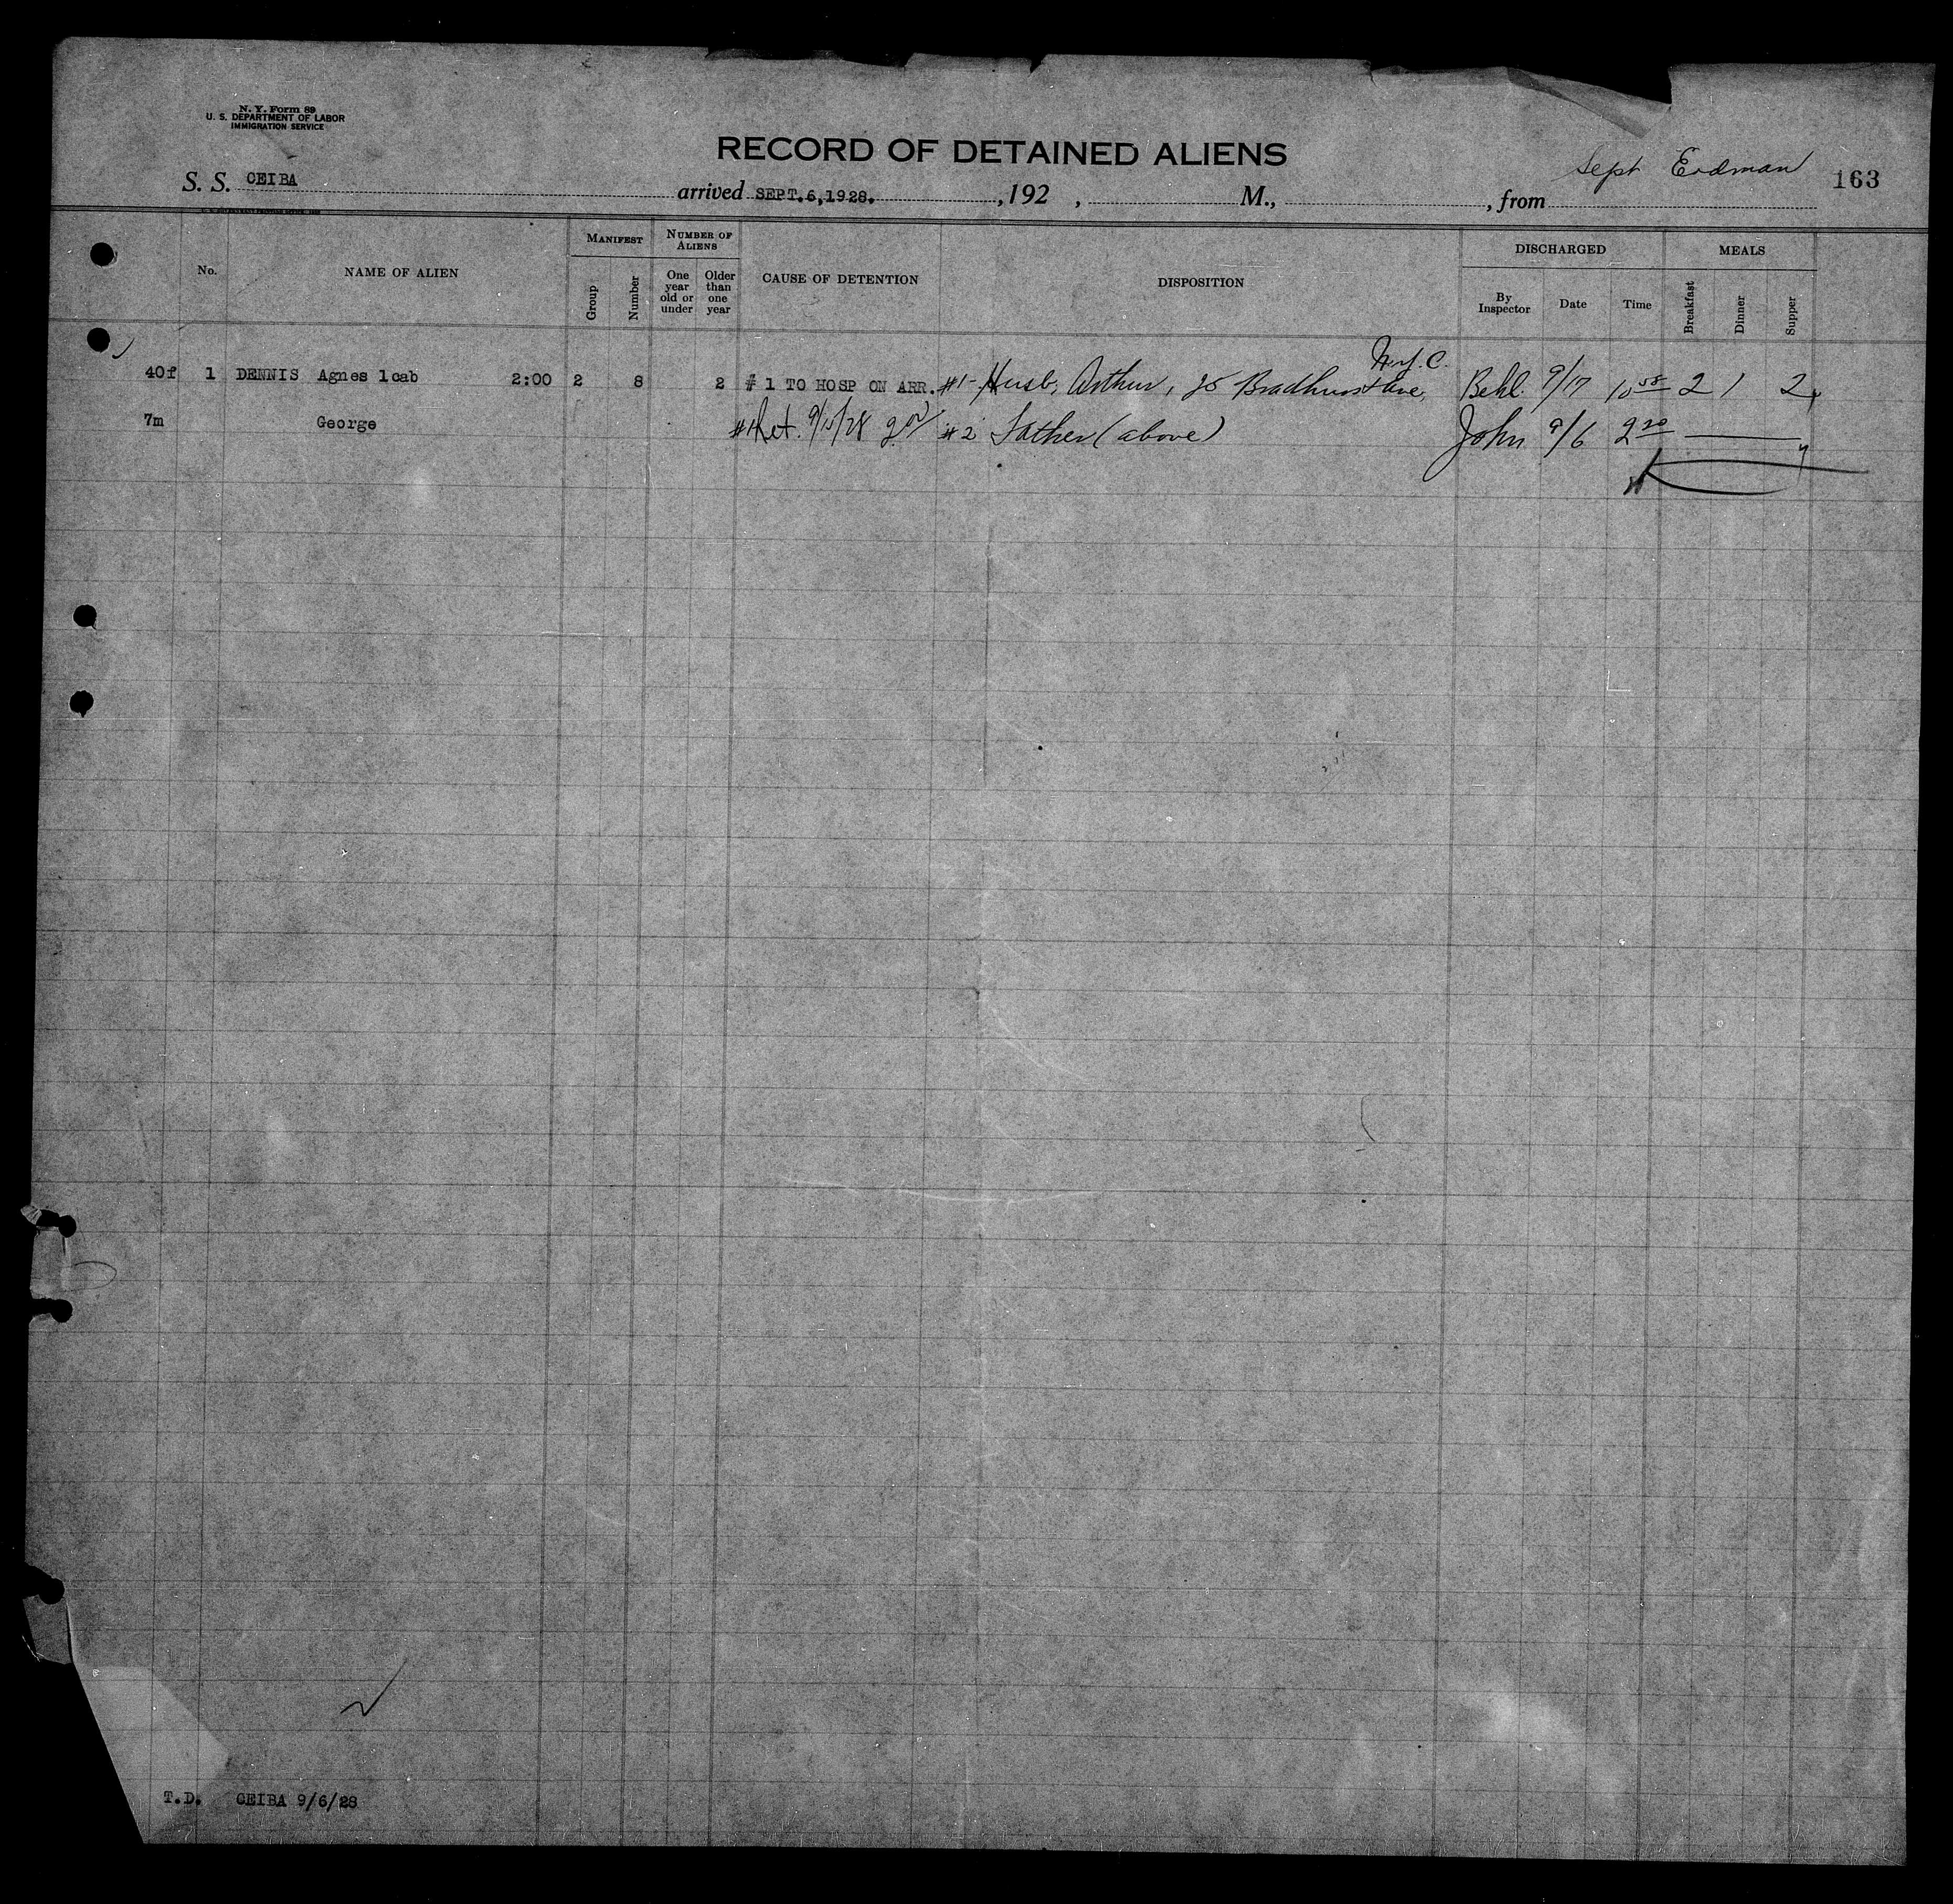 N. Y. Form 89
U. S. DEPARTMENT OF LABOR
IMMIGRATION SERVICE
RECORD OF DETAINED ALIENS
Sept Erdman
163
S. S. CEIBA arrived SEPT.6,1928. , 192 , M., , from
No. NAME OF ALIEN MANIFEST Group Number NUMBER OF ALIENS One year old or under Older than one year CAUSE OF DETENTION DISPOSITION DISCHARGED By Inspector Date Time MEALS Breakfast Dinner Supper
N.Y.C.
40f 1 DENNIS Agnes 1cab 2:00 2 8 2 # 1 TO HOSP ON ARR. #1- Husb, Arthur, 25 Bradhurst Ave, Behl. 9/17 10 58 2 1 2
7m George #1 Ret. 9/15/28 #2 Father (above) John 9/6 2 20
T.D. CEIBA 9/6/28